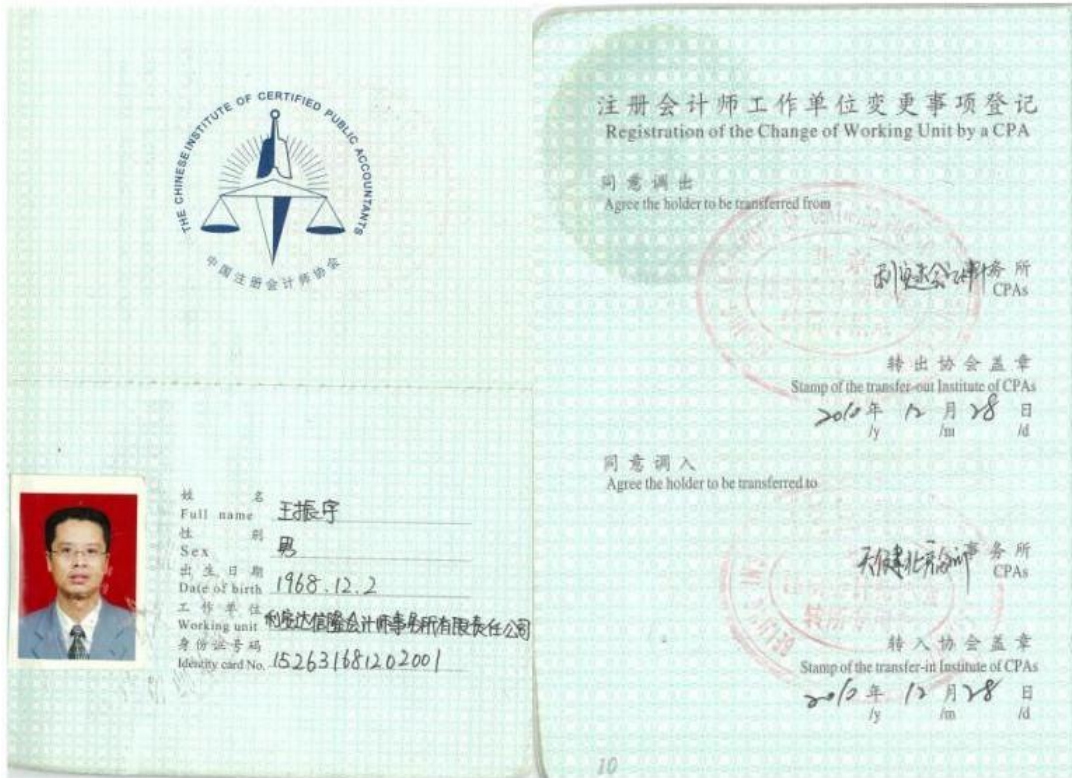 THE CHINESE INSTITUTE OF CERTIFIED PUBLIC ACCOUNTANTS
中国注册会计师协会
姓 名
Full name 王振宇
性 别
Sex 男
出生日期
Date of birth 1968.12.2
工作单位
Working unit 利安达信隆会计师事务所有限责任公司
身份证号码
Identity card No. 152631681202001
注册会计师工作单位变更事项登记
Registration of the Change of Working Unit by a CPA
同意调出
Agree the holder to be transferred from
事务所
CPAs
转出协会盖章
Stamp of the transfer-out Institute of CPAs
2010年 12月28日
/y /m /d
同意调入
Agree the holder to be transferred to
事务所
CPAs
转入协会盖章
Stamp of the transfer-in Institute of CPAs
2010年 12月28日
/y /m /d
10